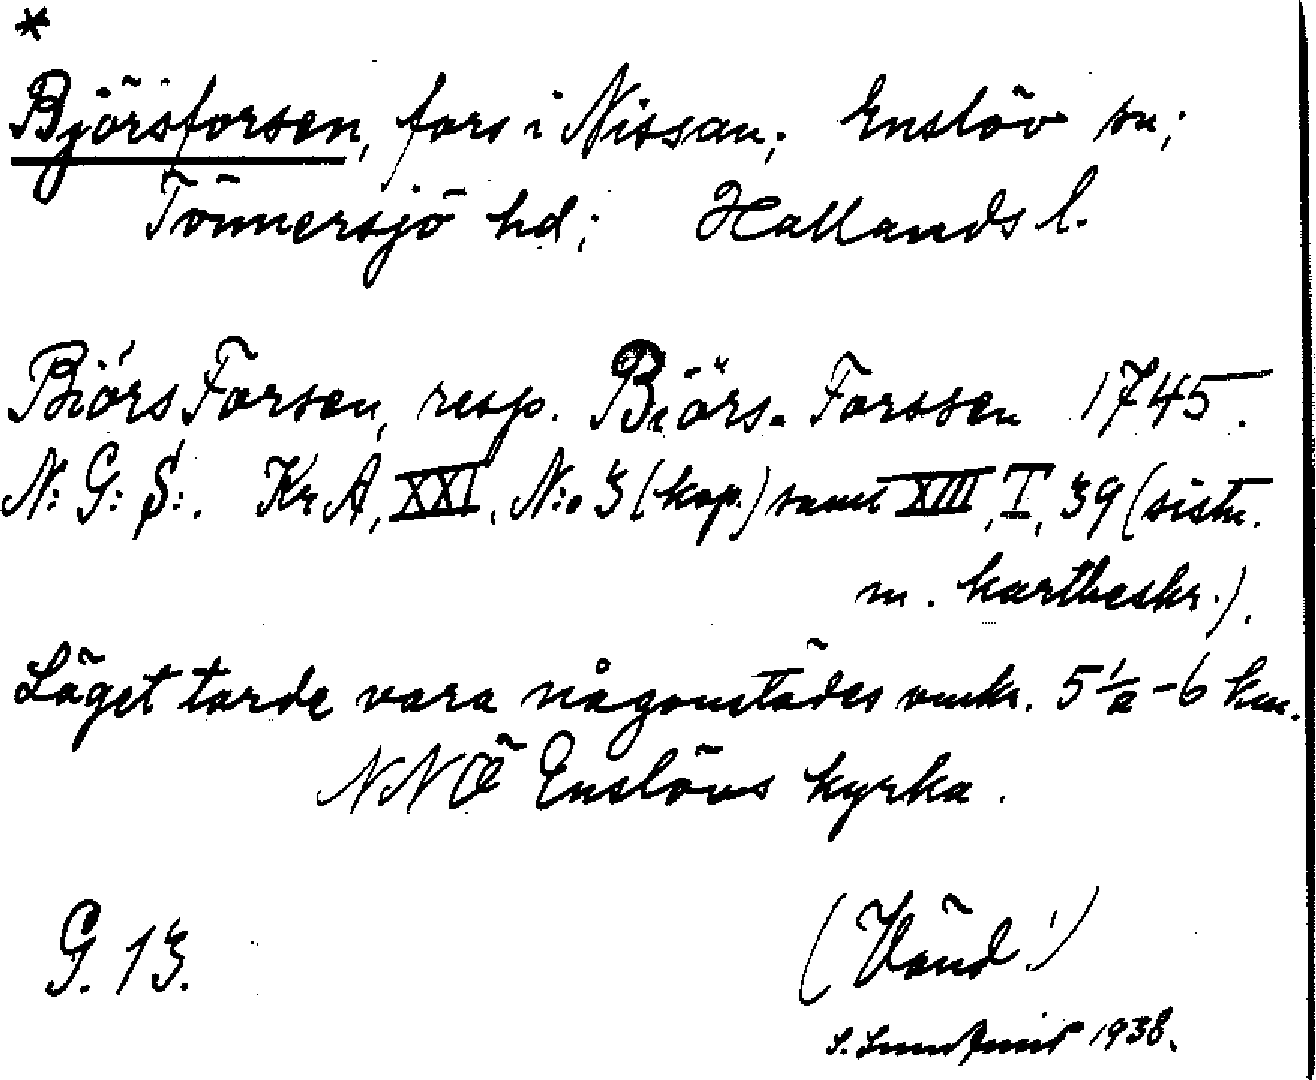 *
Björsforsen, fors i Nissan; Enslöv sn;
Tönnersjö hd; Hallands l.
Biörs Forsen, resp. Biörs. Forssen 1745.
N: G: S:. Kr A, XXI, N:o 3 (kop.) samt XIII, I, 39 (sistn.
m. kartbeskr.).
Läget torde vara någonstädes omkr. 5½-6 km.
NNÖ Enslövs kyrka.
G. 13. (Vänd!)
S. 1938.